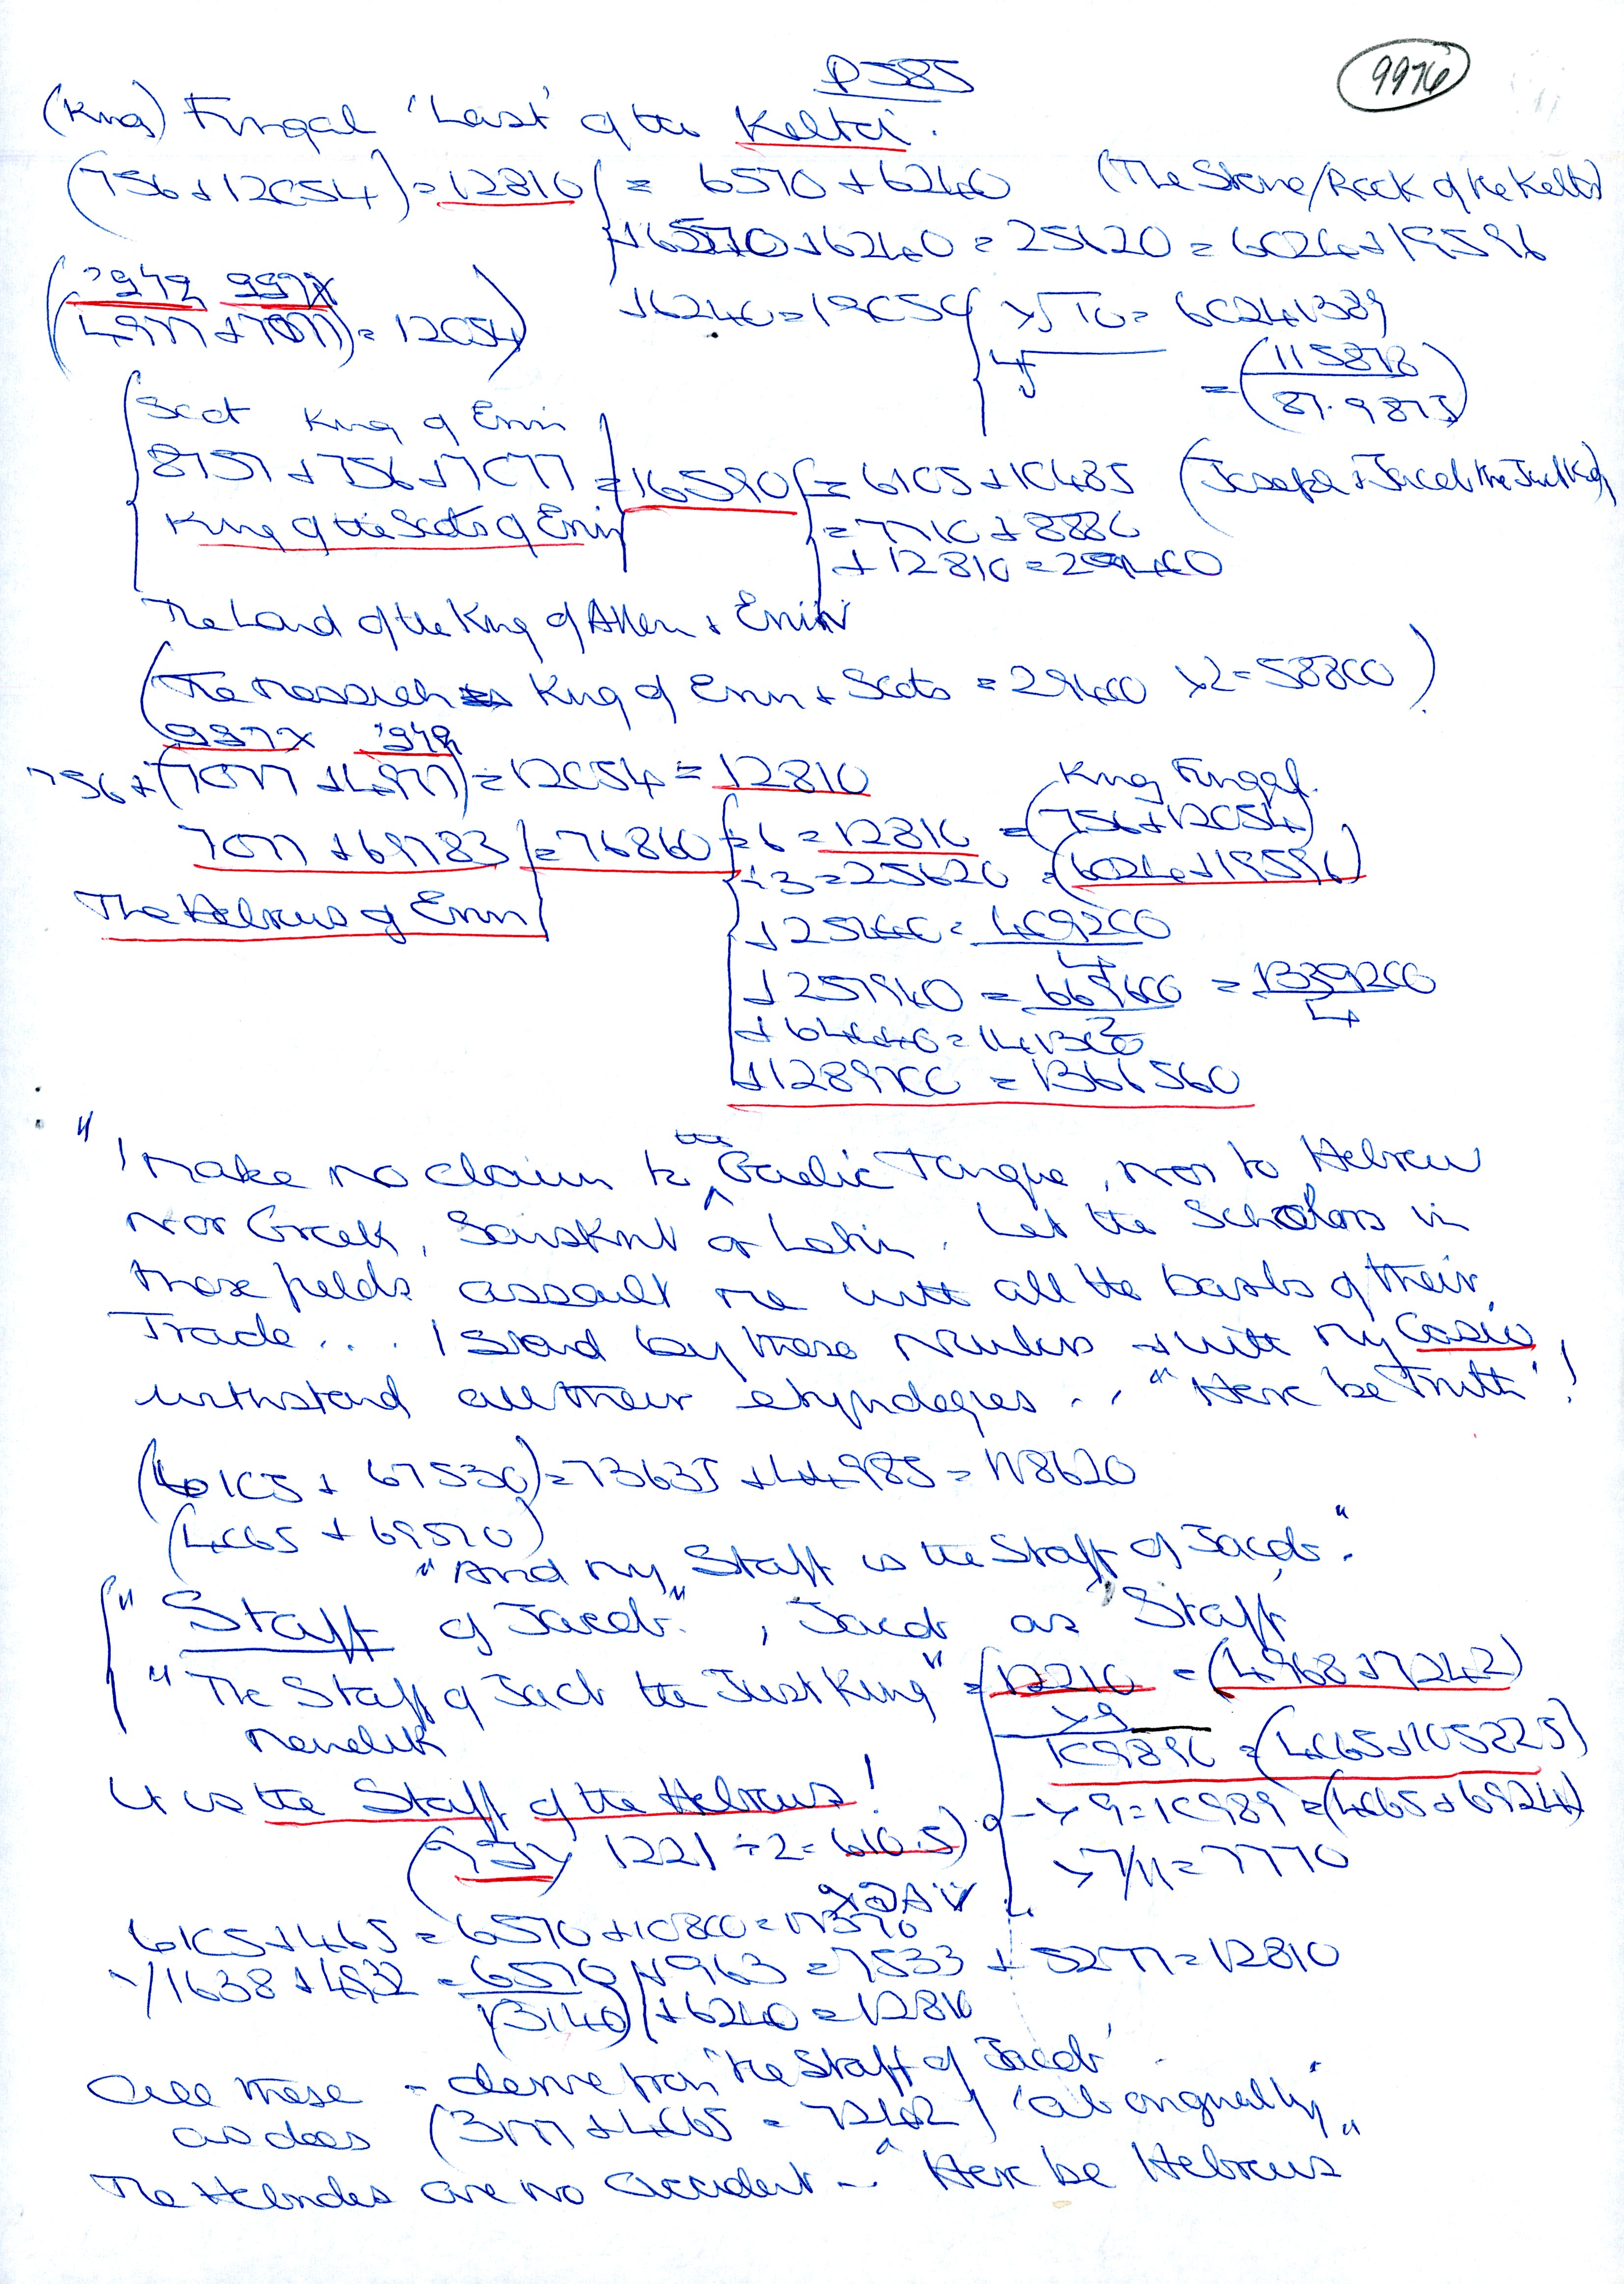 P585
9976
(King) Fingal 'Last' of the Keltoi.
(756 + 12054) = 12810 = 6570 + 6240 (The Stone/Rock of the Kelts)
+ 6570 + 6240 = 25620 = 6024 + 19596
(4977 + 7077) = 12054)
+ 6240 = 19050 × √10 = 60241389
Scot King of Erin
8757 + 756 + 7077 = 16590 = 6105 + 10485 (Joseph + Jacob the Just King)
King of the Scots of Erin = 7710 + 8880
+ 12810 = 29400
The Land of the King of Allen + Erin
(The Messiah King of Erin + Scots = 29400 × 2 = 58800)
756 + (7077 + 4977) = 12054 = 12810
King Fingal
7077 + 69783 = 76860 ÷ 6 = 12810 = (756 + 12054)
÷ 3 = 25620 = (6024 + 19596)
The Hebrews of Erin
+ 25440 = 409200
4
+ 257940 = 669600 = 1339200
2 4
+ 64440 = 141300
+ 1289700 = 1366560
"I make no claim to the Gaelic Tongue, nor to Hebrew
nor Greek, Sanskrit or Latin. Let the Scholars in
these fields assault me with all the barbs of their
Trade... I stand by these Numbers + with my Casio
withstand all their etymologies... "Here be Truth"!
(6105 + 67530) = 73635 + 44985 = 118620
(4065 + 69570)
"And my Staff is the Staff of Jacob".
"Staff of Jacob", Jacob as "Staff"
"The Staff of Jacob the Just King" = 12210 = (4968 + 7242)
Menelik
× 9
109890 = (4065 + 105825)
It is the Staff of the Hebrews!
→ 9 = 10989 = (4065 + 6924)
1221 ÷ 2 = 610.5)
× 7/11 = 7770
6105 + 465 = 6570 + 10800 = 17370
1638 + 4932 = 6570 + 963 = 7533 + 5277 = 12810
(13140) + 6240 = 12810
All these - derive from "the Staff of Jacob"
as does (3177 + 4065 = 7242) 'ab originally'
The Hebrides are no accident - "Here be Hebrews"